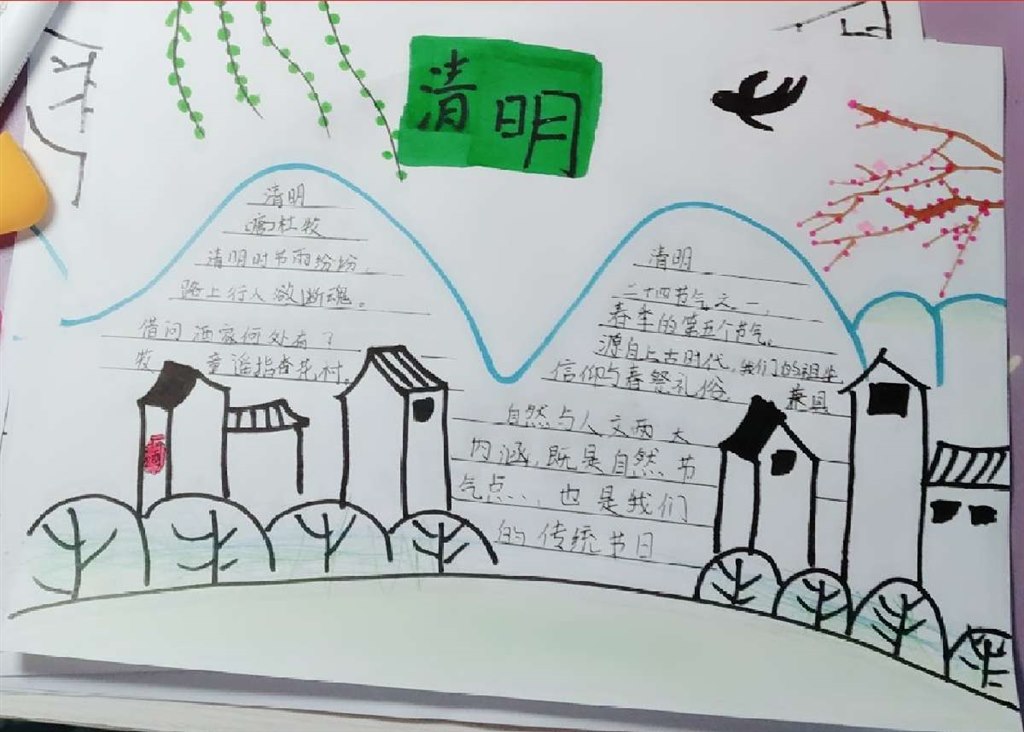 清明
清明
杜牧
清明时节雨纷纷
路上行人欲断魂。
借问酒家何处有?
童遥指杏花村。
清明
二十四节气之一,
春季的第五个节气。
源自上古时代,我们的祖先
信仰与春祭礼俗, 兼具
自然与人文两大
内涵,既是自然节
气点、,也是我们
的传统节日